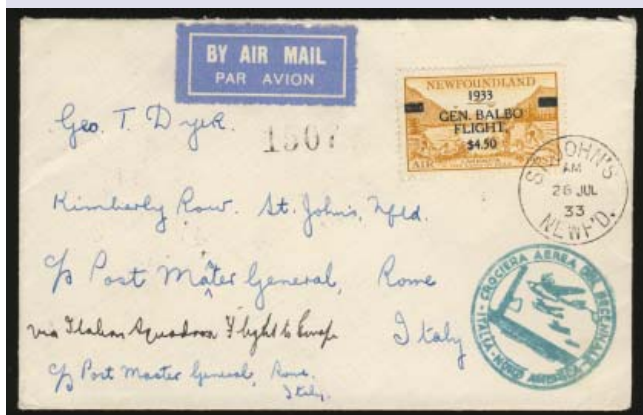 BY AIR MAIL
PAR AVION
NEWFOUNDLAND
1933
GEN. BALBO
FLIGHT.
$4.50
AIR
Geo. T. Dyer.
1507
ST. JOHN'S
AM
26 JUL
33
NEWF'D.
Kimberly Row. St. John's, Nfld.
c/o Post Master General, Rome
via Italian Squadron Flight to Europe
Italy
c/o Post Master General, Rome.
Italy.
CROCIERA AEREA DEL DECENNALE
ITALIA - NORD AMERICA